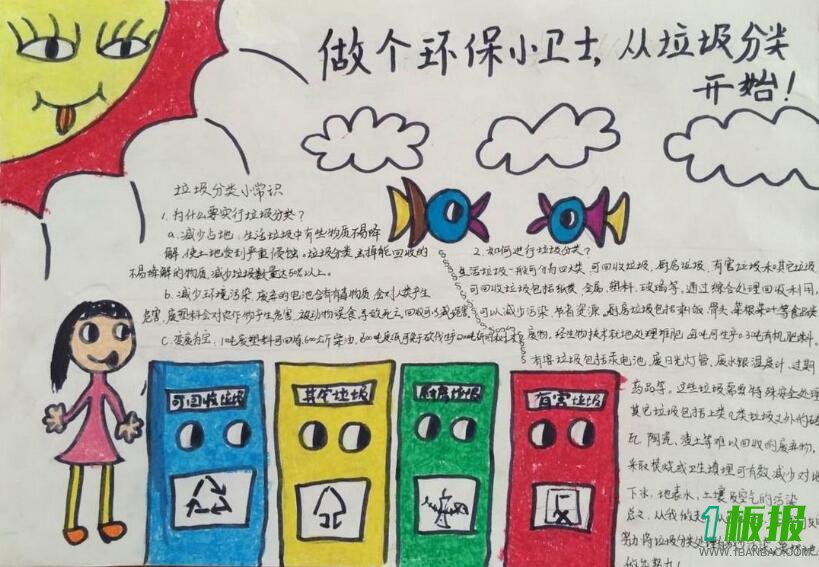 做个环保小卫士,从垃圾分类
开始!
垃圾分类小常识
1. 为什么要实行垃圾分类?
a. 减少占地:生活垃圾中有些物质不易降
解,使土地受到严重侵蚀。垃圾分类,去掉能回收的
不易降解的物质,减少垃圾数量达50%以上。
b. 减少环境污染:废弃的电池含有毒物质,会对人类产生
危害,废塑料会对农作物产生危害,被动物误食,导致死亡,回收可减少危害
c. 变废为宝:1吨废塑料可回炼600公斤柴油,
2. 如何进行垃圾分类?
生活垃圾一般可分为四大类:可回收垃圾,厨房垃圾,有害垃圾和其它垃圾
可回收垃圾包括纸类,金属,塑料,玻璃等,通过综合处理回收利用,
可以减少污染,节省资源。厨房垃圾包括剩饭,骨头,菜根菜叶等食品类
废物,经生物技术就地处理堆肥,每吨可生产0.3吨有机肥料。
有害垃圾包括废电池,废日光灯管,废水银温度计,过期
药品等。这些垃圾需要特殊安全处理
其它垃圾包括上类几类垃圾之外的砖
瓦,陶瓷,渣土等难以回收的废弃物,
采取焚烧或卫生填埋可有效减少对地
下水,地表水,土壤及空气的污染
总之,从我做起
努力将垃圾分类处理
可回收垃圾
其它垃圾
厨房垃圾
有害垃圾
1板报
WWW.1BANBAO.COM